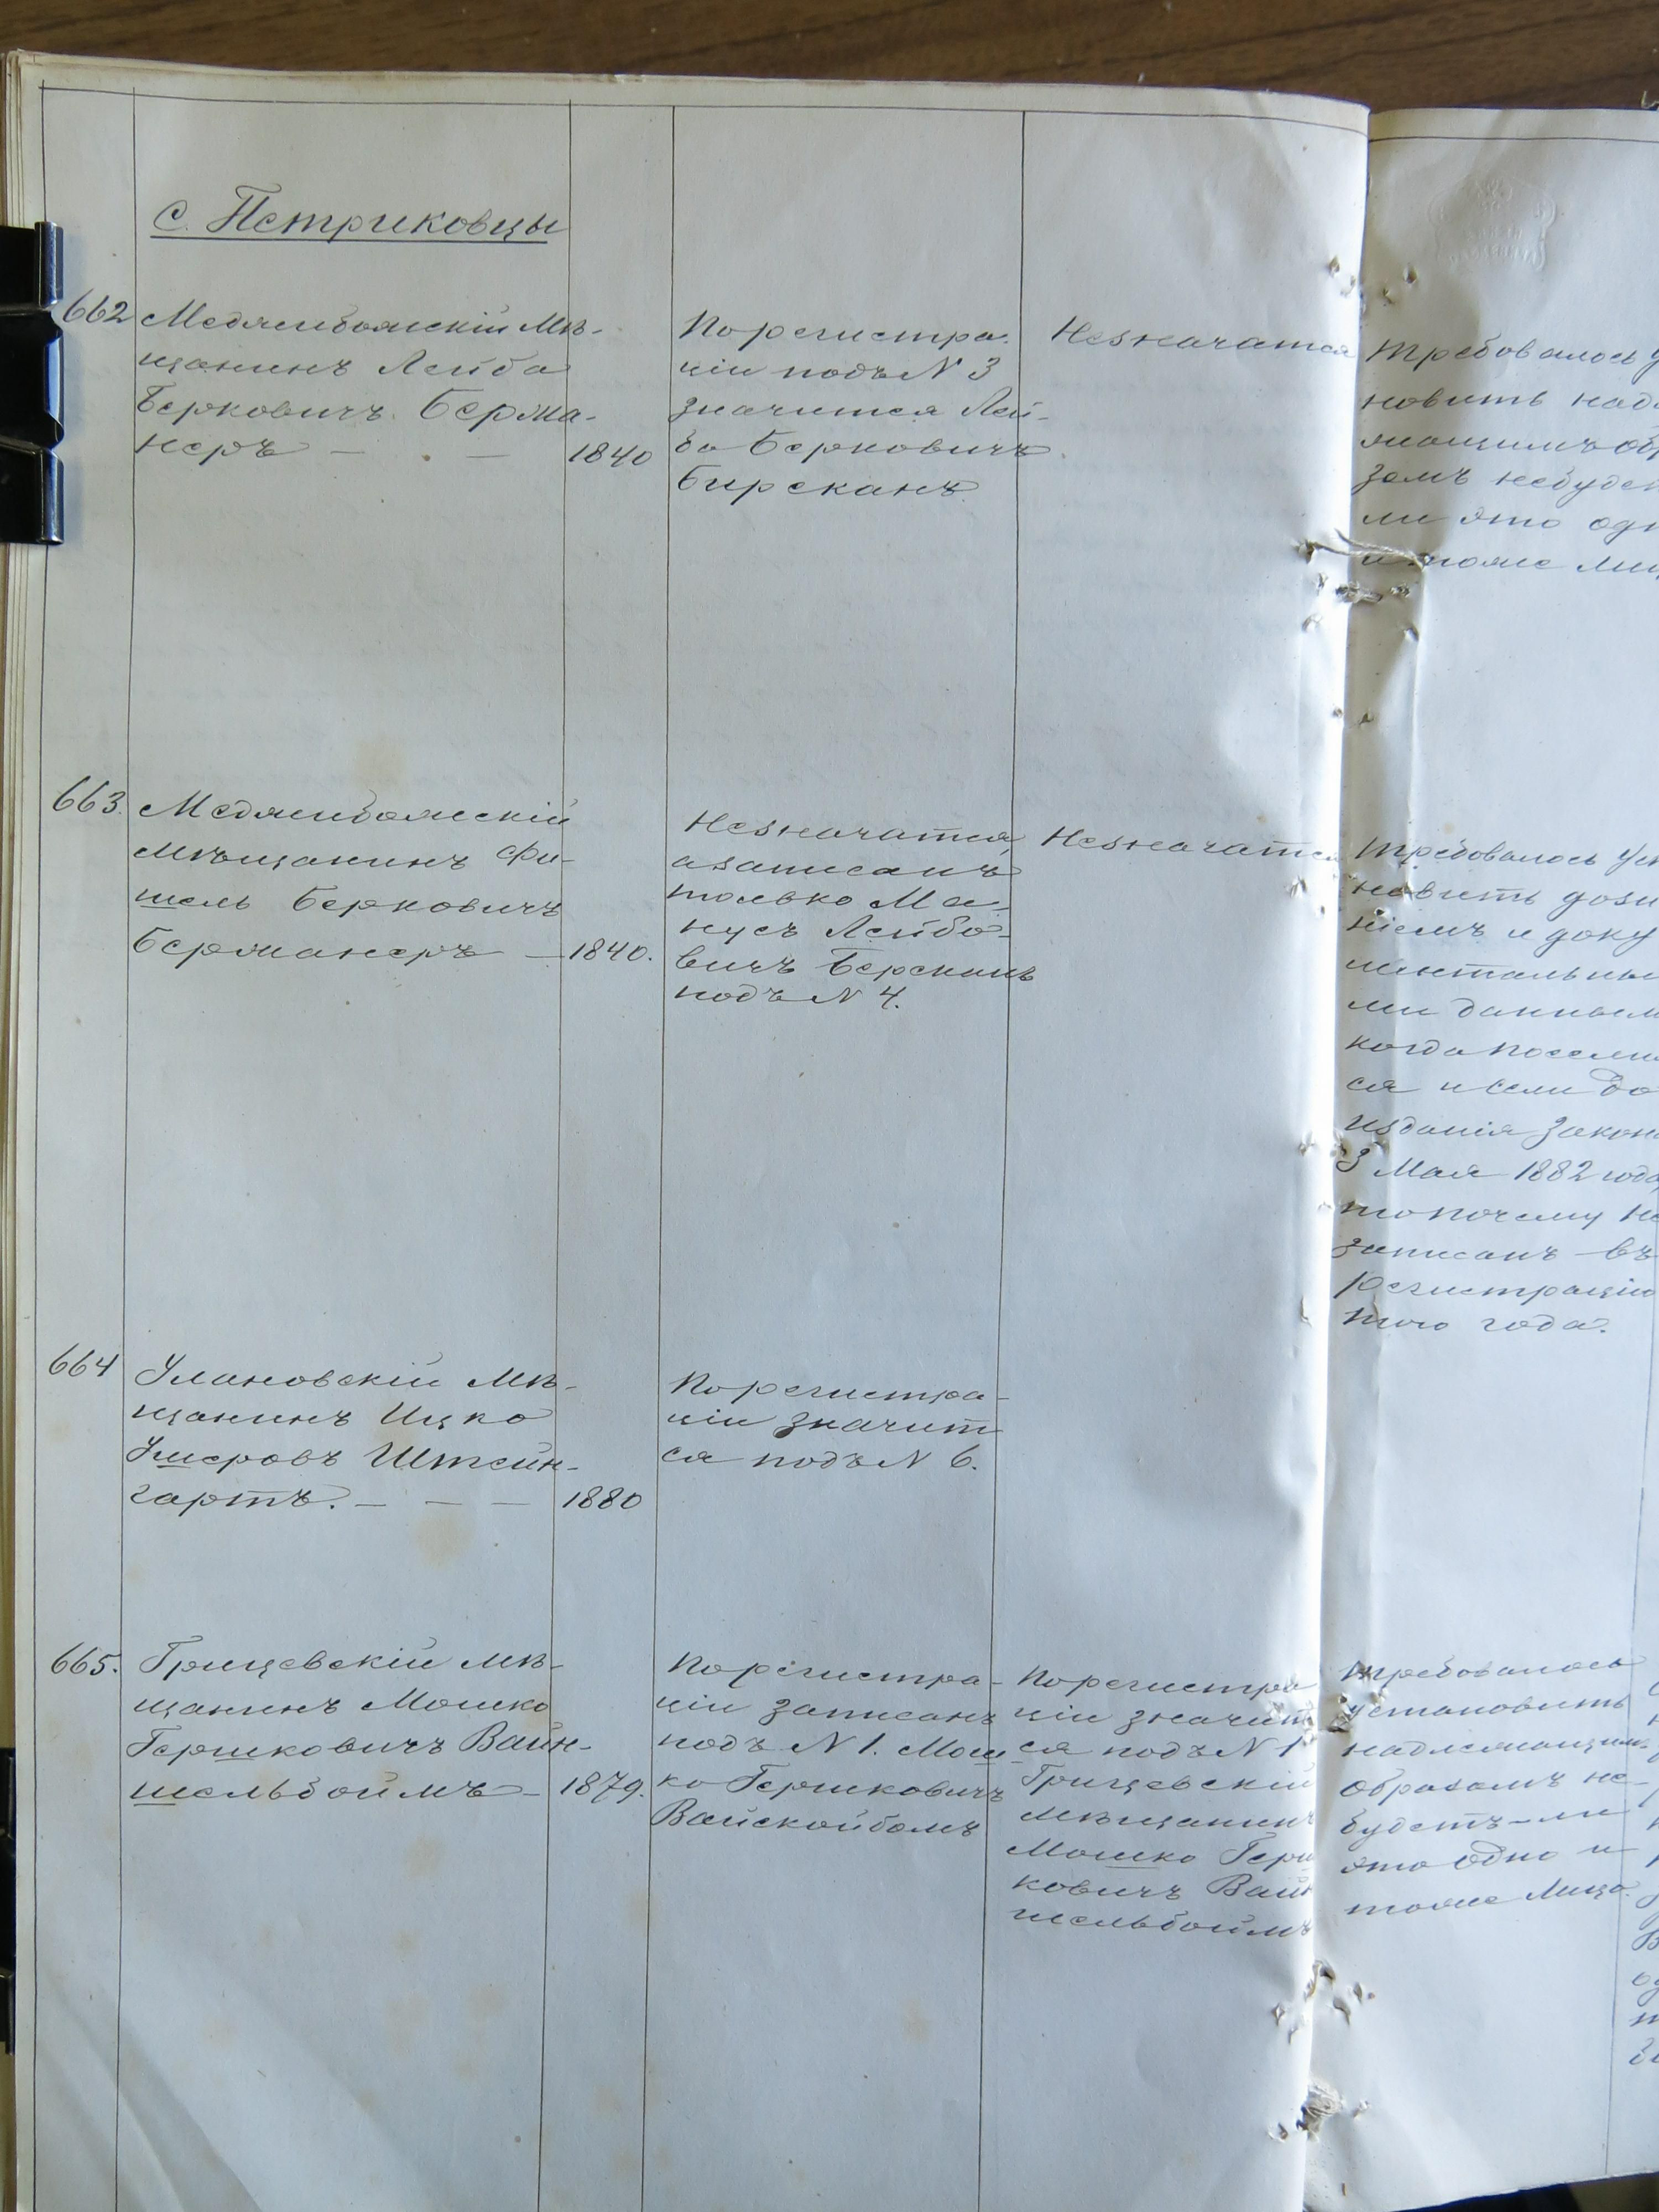 с. Петриковцы
662
Меджибожскій мѣ-
щанинъ Лейба
Берковичъ Берма-
неръ — — 1840
По регистра-
ціи подъ N 3
значится Лей-
ба Берковичъ
Бирсканъ
Незначатся
Требовалось
новить
зомъ небуде
ли это одн
и тоже лиц
663.
Меджибожскій
мѣщанинъ Фи-
шель Берковичъ
Берманеръ — 1840.
Незначатся,
а записанъ
только Ма
нусъ Лейбо-
вичъ Берсканъ
подъ N 4.
Незначатся
Требовалось Уст
новить дозн
ніемъ и доку
ментальны
ми данным
когда поселил
ся и если до
изданія закон
3 Мая 1882 года,
то почему не
записанъ въ
регистрацію
того года.
664
Улановскій мѣ-
щанинъ Ицко
Ушеровъ Штейн-
гартъ. — — — 1880
По регистра-
ціи значит
ся подъ N 6.
665.
Грицевскій мѣ-
щанинъ Мошко
Гершковичъ Вайн-
шельбоймъ — 1879.
По регистра-
ціи записанъ
подъ N 1. Мош
ко Гершковичъ
Вайскойбомъ
По регистра
ціи значит
ся подъ N 1
Грицевскій
мѣщанинъ
Мошко Герш
ковичъ Вайн
шельбоймъ
Требовалось
установить
надлежащим
образомъ не-
будетъ-ли
это одно и
тоже лицо.